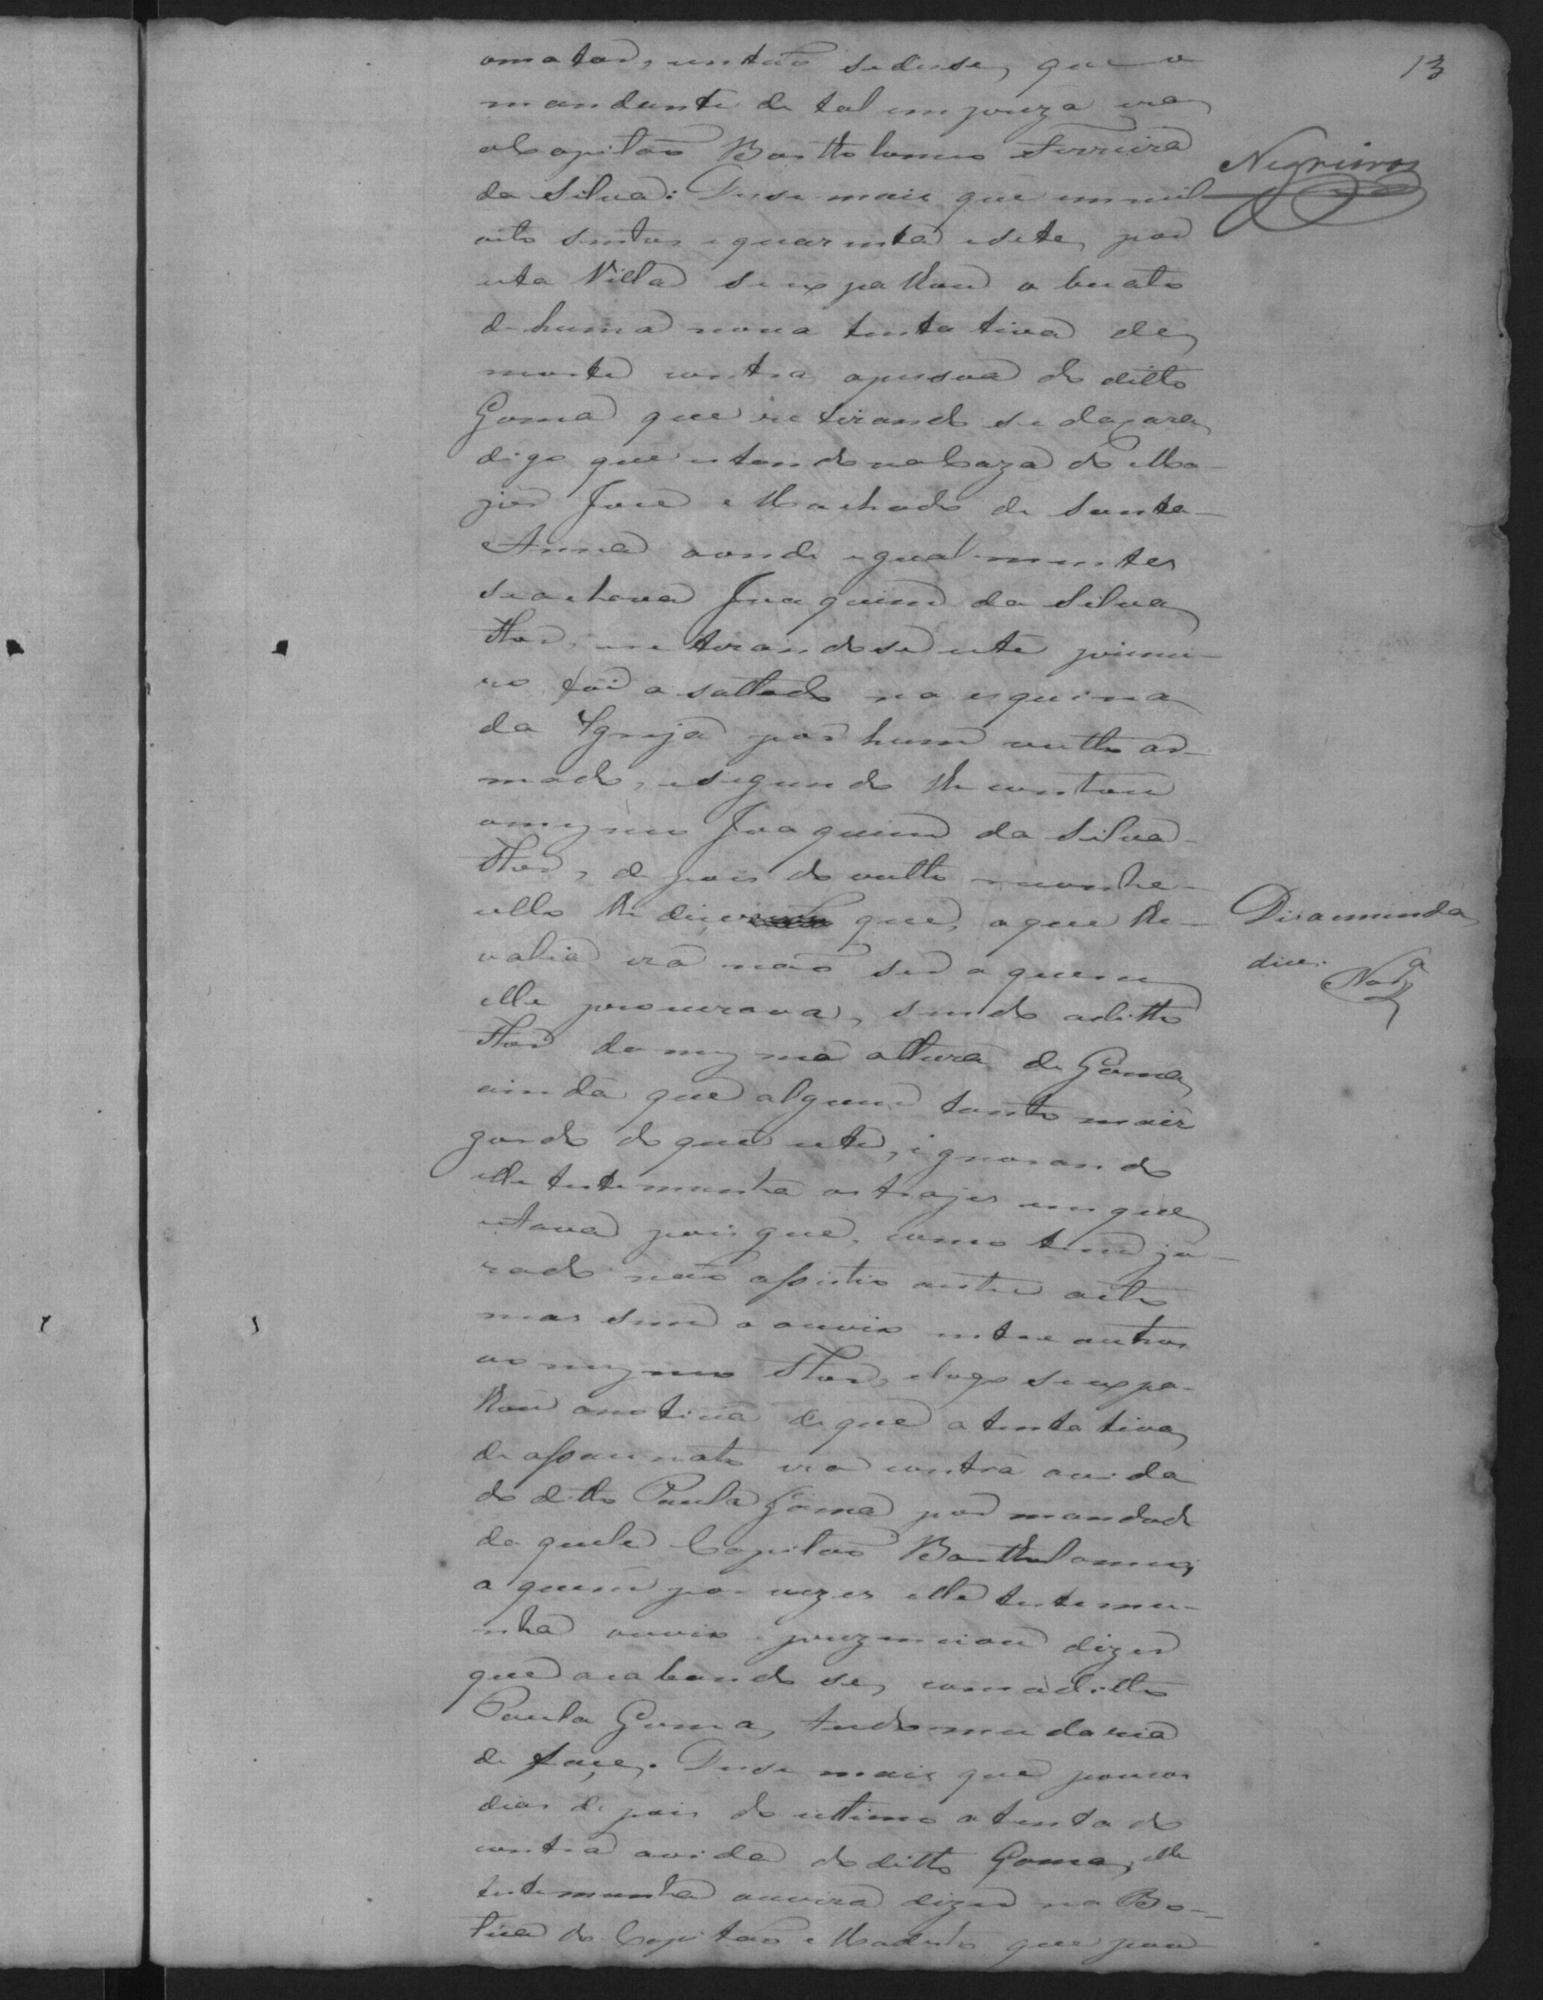 13
o matar, então se disse, que o
mandante de tal empreza era
o Capitão Bartholomeo Ferreira
Negreiros
da Silva: Disse mais que em mil
oito sentos e quarenta e sete, por
esta Villa se espalhou o buato
de huma nova tentativa de
morte contra a pessoa do ditto
Gama que retirando se da cara,
digo que estando na Caza do Ma-
jor José Machado de Santa
Anna aonde igualmentes
se achava Joaquim da Silva
Flor, e retirandose este primei-
ro foi asaltado na esquina
da Igreja por hum vulto ar-
mado, e segundo lhe contou
o mesmo Joaquim da Silva
Flor, de pois do vulto reconhe-
cello lhe dice que, o que lhe
Diz a emenda
dice.
valia era não ser a quem
elle procurava, sendo o ditto
Flor da mesma altura de Gama,
ainda que algum tanto mais
gordo do que este, ignorando
elle testemunha os trajes em que
estava por que, como tem ju-
rado não assistio a este acto
mas sim o ouvio entre outros
ao mesmo Flor, e logo se espa-
lhou a noticia de que a tentativa
de assacinato era contra a vida
do ditto Paula Gama por mandado
daquele Capitão Bartholomeo,
a quem por vezes elle testemu-
nha ouvio e prezenciou dizer
que acabando se, com o ditto
Paula Gama, tudo mudaria
de face. Disse mais que poucos
dias de pois do ultimo atentado
contra a vida do ditto Gama, elle
testemunha ouvira dizer na Bo-
tica do Capitão Modesto que por